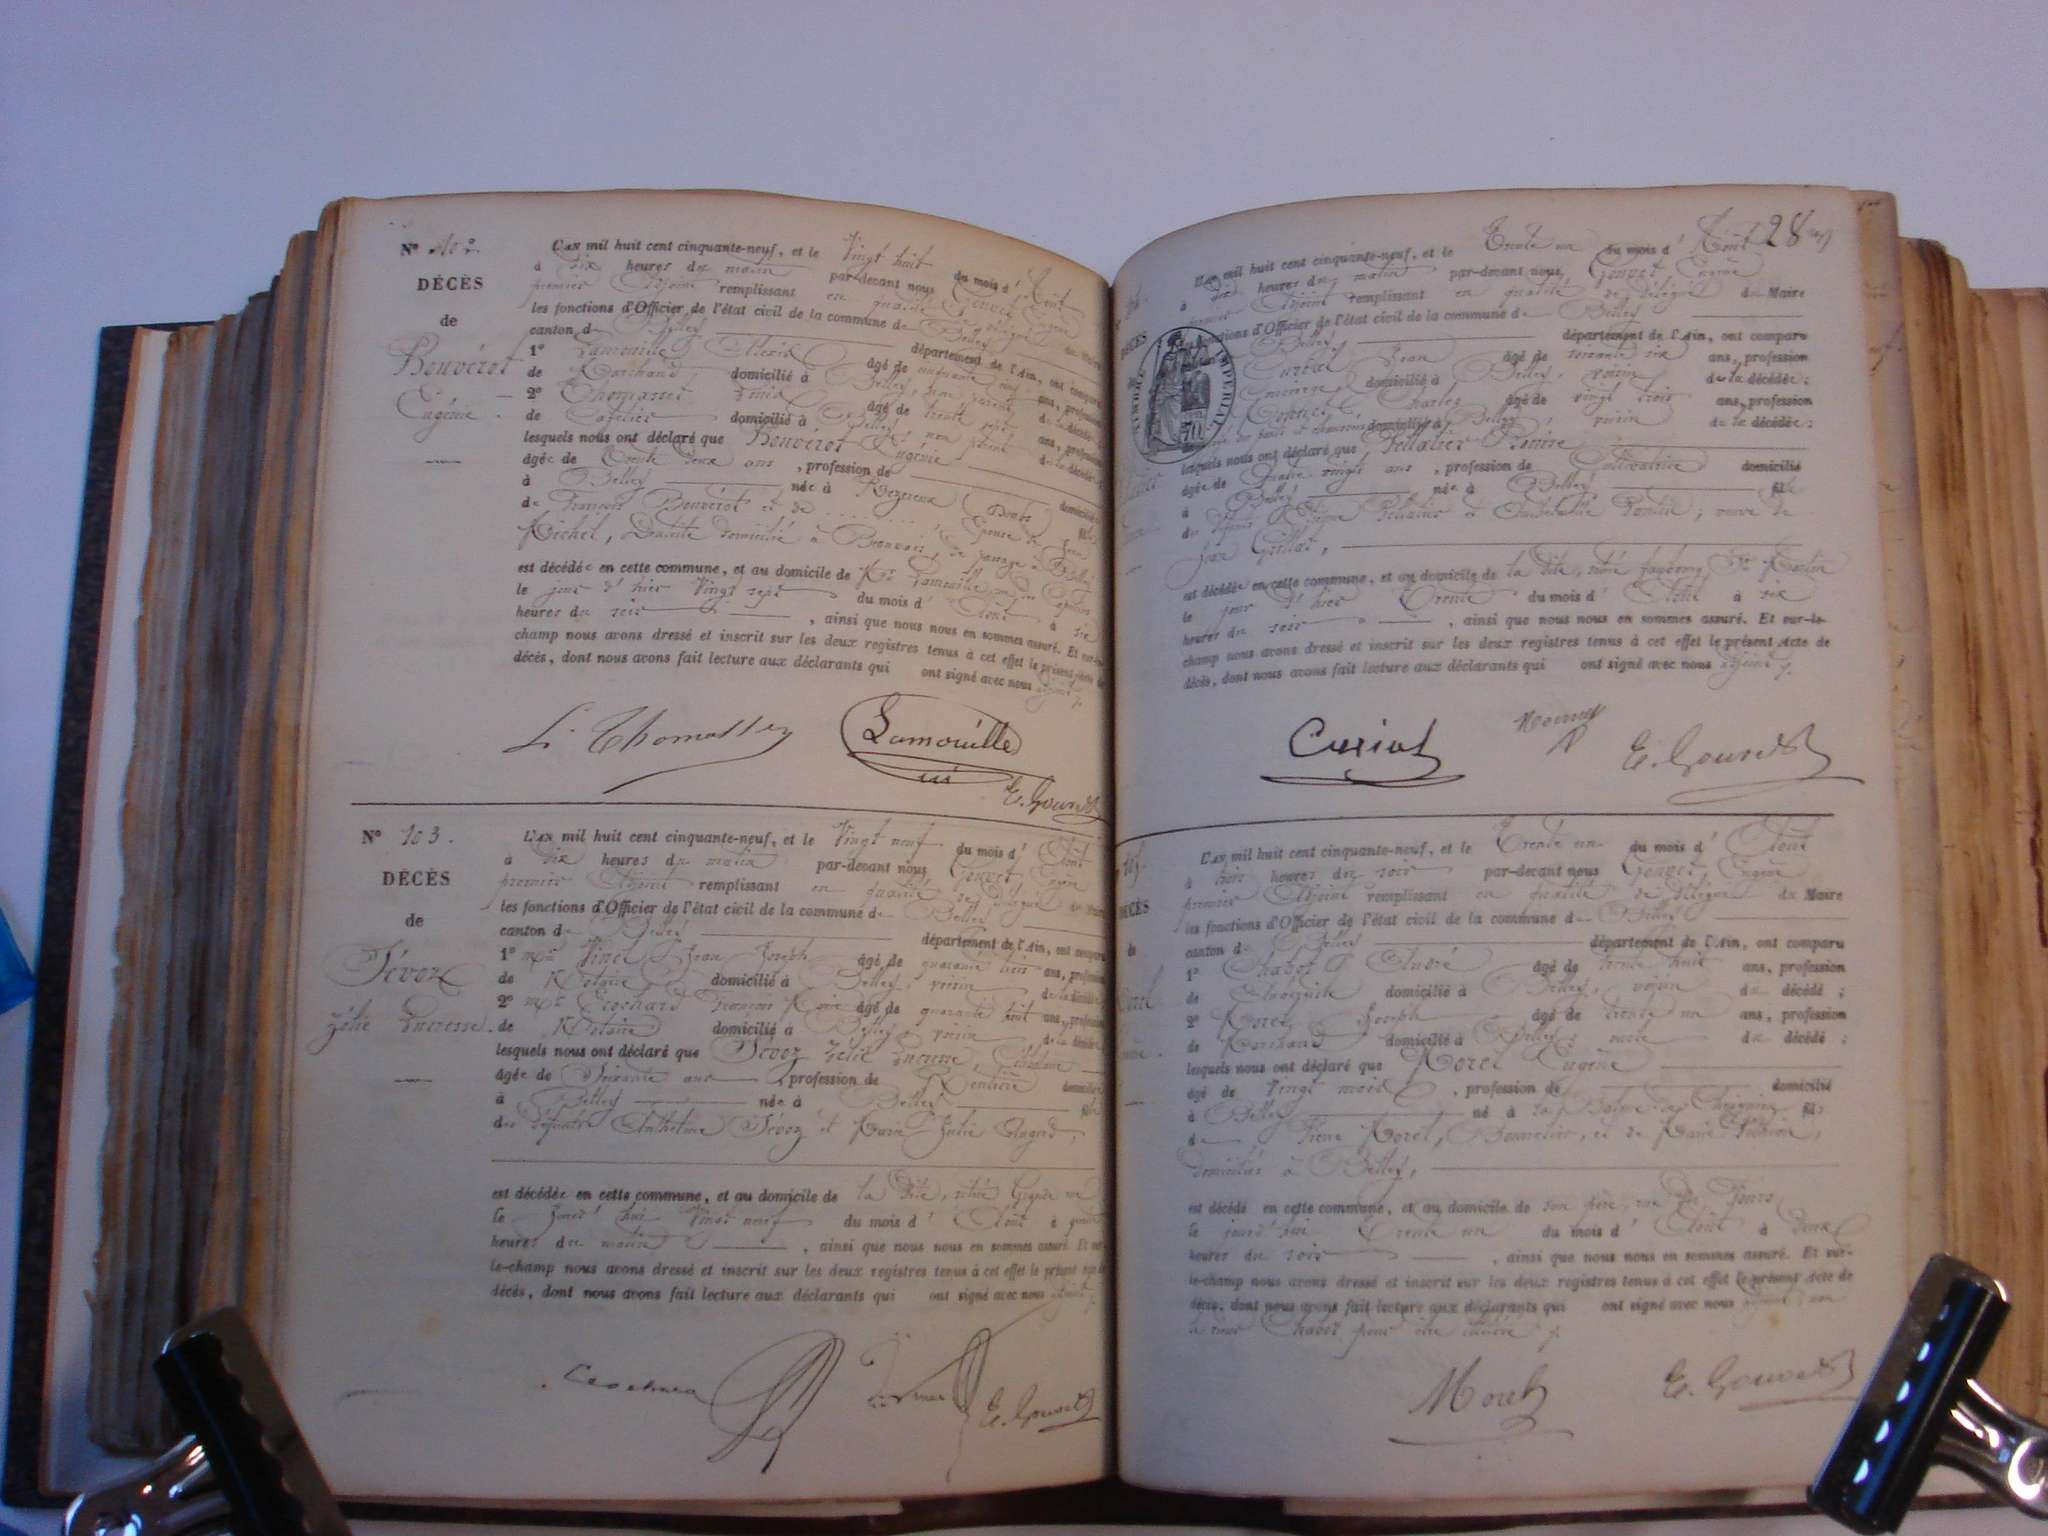 N° 102.
DÉCÈS
de
Bouvérot
Eugénie.
L'AN mil huit cent cinquante-neuf, et le Vingt huit du mois d' Août
à six heures du matin par-devant nous Gouvet Eugène
premier Adjoint remplissant en qualité de délégué du Maire
les fonctions d'Officier de l'état civil de la commune de Belley
canton de Belley département de l'Ain, ont comparu
1° Lamouille Alexis âgé de cinquante neuf ans, profession
de Marchand domicilié à Belley, non parent de la décédée
2° Thomasset Louis âgé de trente sept ans, profession
de Cafetier domicilié à Belley, non parent de la décédée
lesquels nous ont déclaré que Bouvérot Eugénie
âgée de Trente deux ans, profession de domiciliée
à Belley née à (Doubs) fille
de François Bouvérot et de ........ Épouse de Jean
Michel, Dentiste domicilié à Beauvais, de passage à Belley
est décédée en cette commune, et au domicile de Mr Lamouille
le jour d'hier Vingt sept du mois d' Août à six
heures du soir, ainsi que nous nous en sommes assuré. Et sur-le-
champ nous avons dressé et inscrit sur les deux registres tenus à cet effet le présent acte de
décès, dont nous avons fait lecture aux déclarants qui ont signé avec nous adjoint
L. Thomasset Lamouille E. Gouvet
N° 103.
DÉCÈS
de
Tévoz
Zélie Lucresse.
L'AN mil huit cent cinquante-neuf, et le Vingt neuf du mois d' Août
à six heures du matin par-devant nous Gouvet Eugène
premier Adjoint remplissant en qualité de délégué du Maire
les fonctions d'Officier de l'état civil de la commune de Belley
canton de Belley département de l'Ain, ont comparu
1° Jean Joseph âgé de quarante trois ans, profession
de Notaire domicilié à Belley, voisin de la décédée
2° Cochard François Marie âgé de quarante huit ans, profession
de Notaire domicilié à Belley, voisin de la décédée
lesquels nous ont déclaré que Tévoz Zélie Lucresse, Célibataire
âgée de Soixante ans profession de Rentière domiciliée
à Belley née à Belley fille
des défunts Anthelme Tévoz et Marie Julie
est décédée en cette commune, et au domicile de la dite, située
le jourd'hui Vingt neuf du mois d' Août à quatre
heures du matin, ainsi que nous nous en sommes assuré. Et sur-
le-champ nous avons dressé et inscrit sur les deux registres tenus à cet effet le présent acte de
décès, dont nous avons fait lecture aux déclarants qui ont signé avec nous adjoint
E. Gouvet
28
DÉCÈS
TIMBRE IMPÉRIAL
L'AN mil huit cent cinquante-neuf, et le Trente un du mois d' Août
à heures du matin par-devant nous Gouvet Eugène
premier Adjoint remplissant en qualité de délégué du Maire
les fonctions d'Officier de l'état civil de la commune de Belley
Belley département de l'Ain, ont comparu
Curiat Jean âgé de soixante six ans, profession
domicilié à Belley, voisin de la décédée;
Charles âgé de vingt trois ans, profession
domicilié à Belley, voisin de la décédée;
lesquels nous ont déclaré que Pellatier
âgée de Quatre vingts ans, profession de Cultivatrice domiciliée
à Belley née à Belley fille
des défunts Pellatier et; veuve de
Jean Grillat,
est décédée en cette commune, et au domicile de la dite, situé faubourg St Martin
le jour d'hier Trente du mois d' Août à six
heures du soir, ainsi que nous nous en sommes assuré. Et sur-le-
champ nous avons dressé et inscrit sur les deux registres tenus à cet effet le présent acte de
décès, dont nous avons fait lecture aux déclarants qui ont signé avec nous adjoint
Curiat E. Gouvet
DÉCÈS
de
L'AN mil huit cent cinquante-neuf, et le Trente un du mois d' Août
à trois heures du soir par-devant nous Gouvet Eugène
premier Adjoint remplissant en qualité de délégué du Maire
les fonctions d'Officier de l'état civil de la commune de Belley
canton de Belley département de l'Ain, ont comparu
1° Chabot André âgé de trente huit ans, profession
de domicilié à Belley, voisin du décédé;
2° Morel Joseph âgé de trente un ans, profession
de Marchand domicilié à Belley, oncle du décédé;
lesquels nous ont déclaré que Morel Eugène
âgé de Vingt mois, profession de domicilié
à Belley né à la Balme de fils
de Pierre Morel,, et de Marie,
domiciliés à Belley,
est décédé en cette commune, et au domicile de son père, rue
le jourd'hui Trente un du mois d' Août à deux
heures du soir, ainsi que nous nous en sommes assuré. Et sur-
le-champ nous avons dressé et inscrit sur les deux registres tenus à cet effet le présent acte de
décès, dont nous avons fait lecture aux déclarants qui ont signé avec nous adjoint, non
le sieur Chabot pour être illettré
Morel E. Gouvet